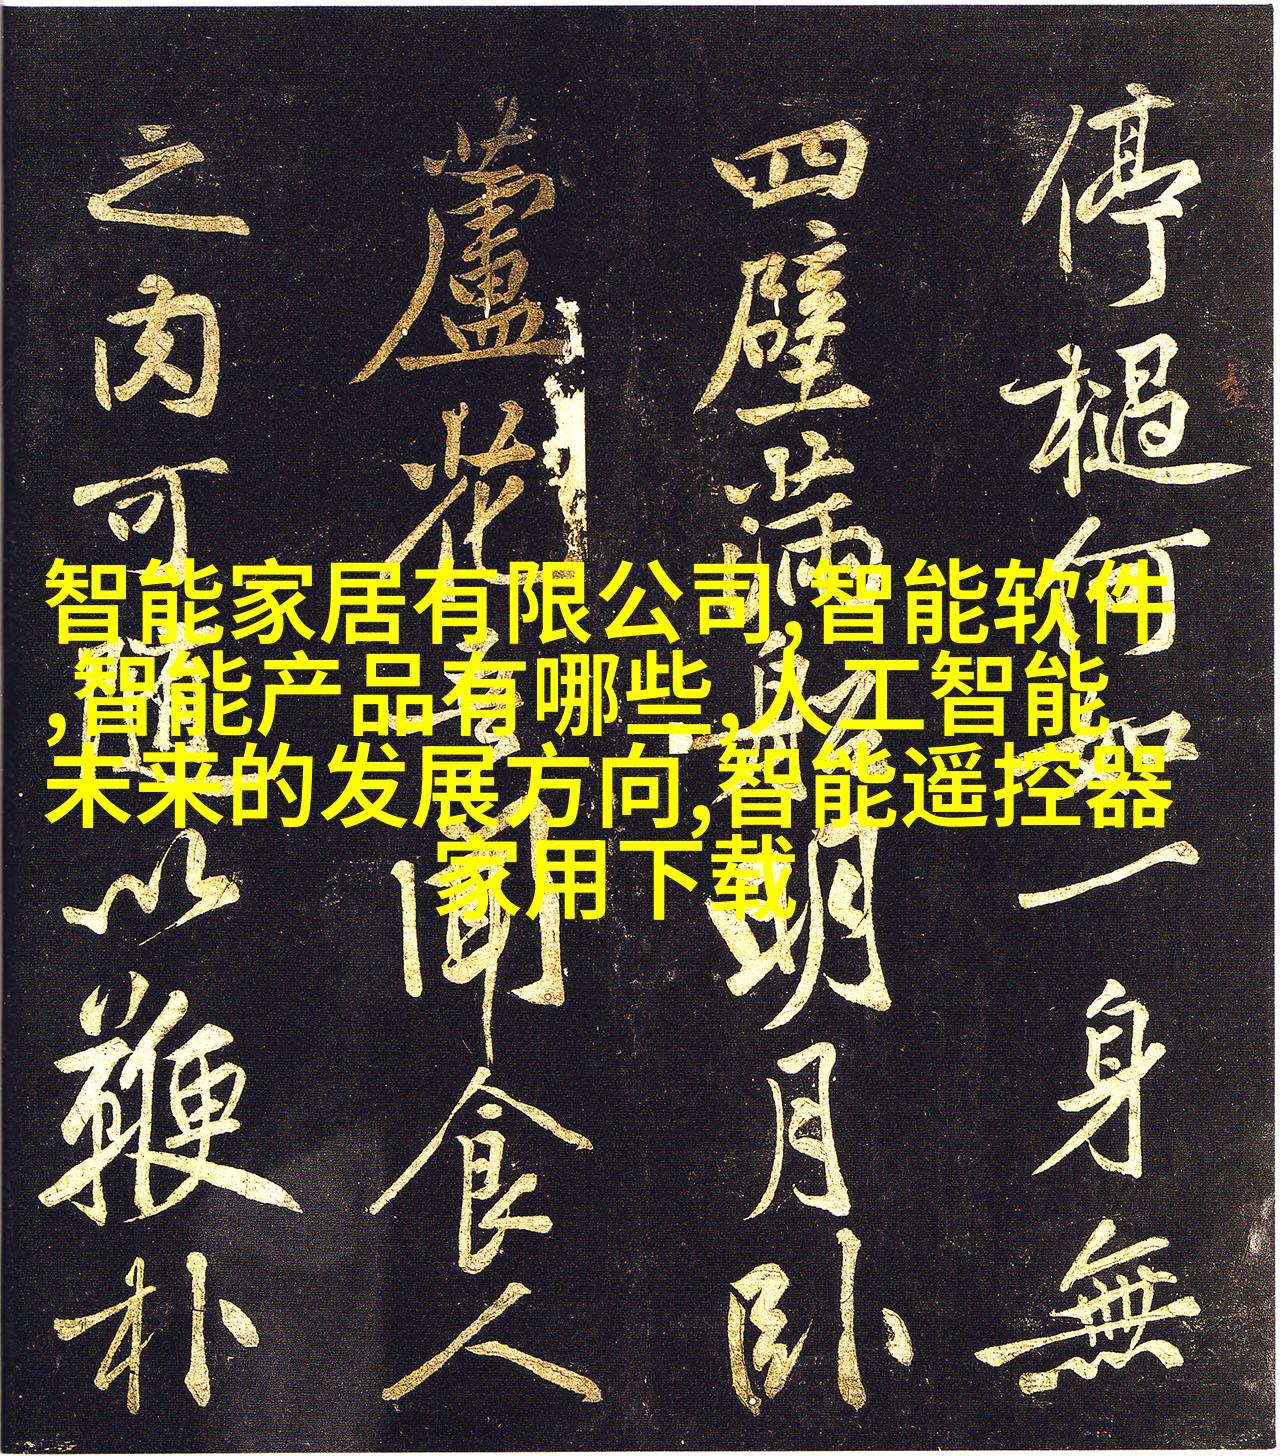 停檛何如一身無
四壁滿船明月卧
蘆花吾聞食人
之肉可隨以鞭朴
智能家居有限公司,智能软件
,智能产品有哪些,人工智能
未来的发展方向,智能遥控器
家用下载